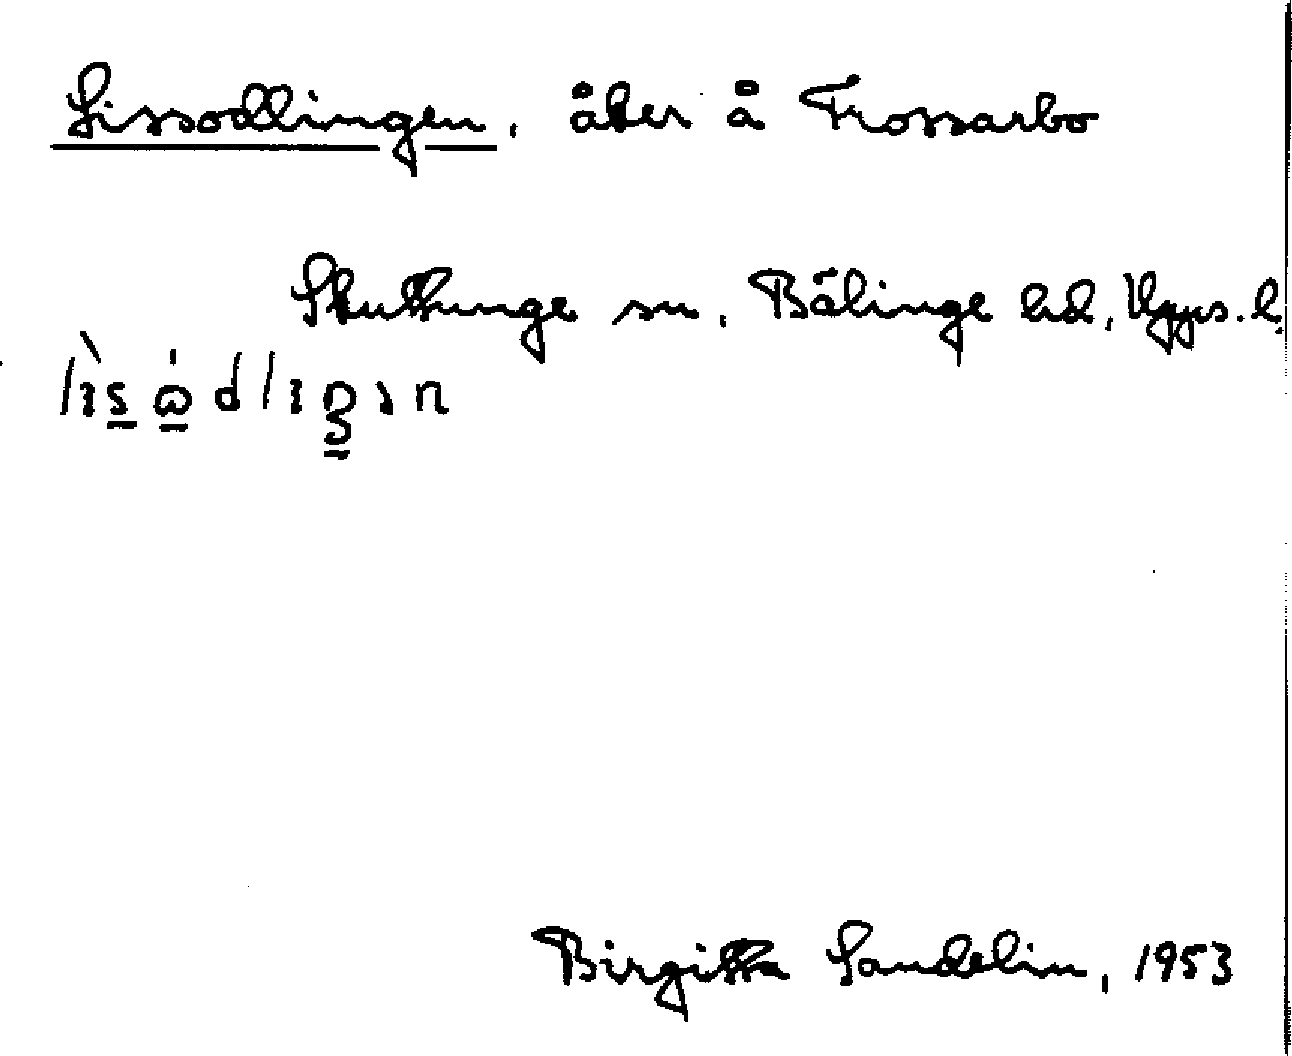 Lissodlingen, åker å Trossarbo
Skuttunge sn, Bälinge hd, Upps. l.
Birgitta Sandelin, 1953